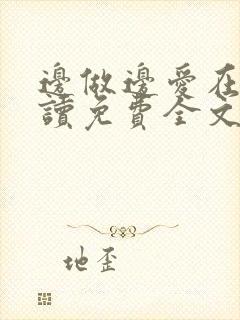 邊做邊愛在
讀免費全文
地歪